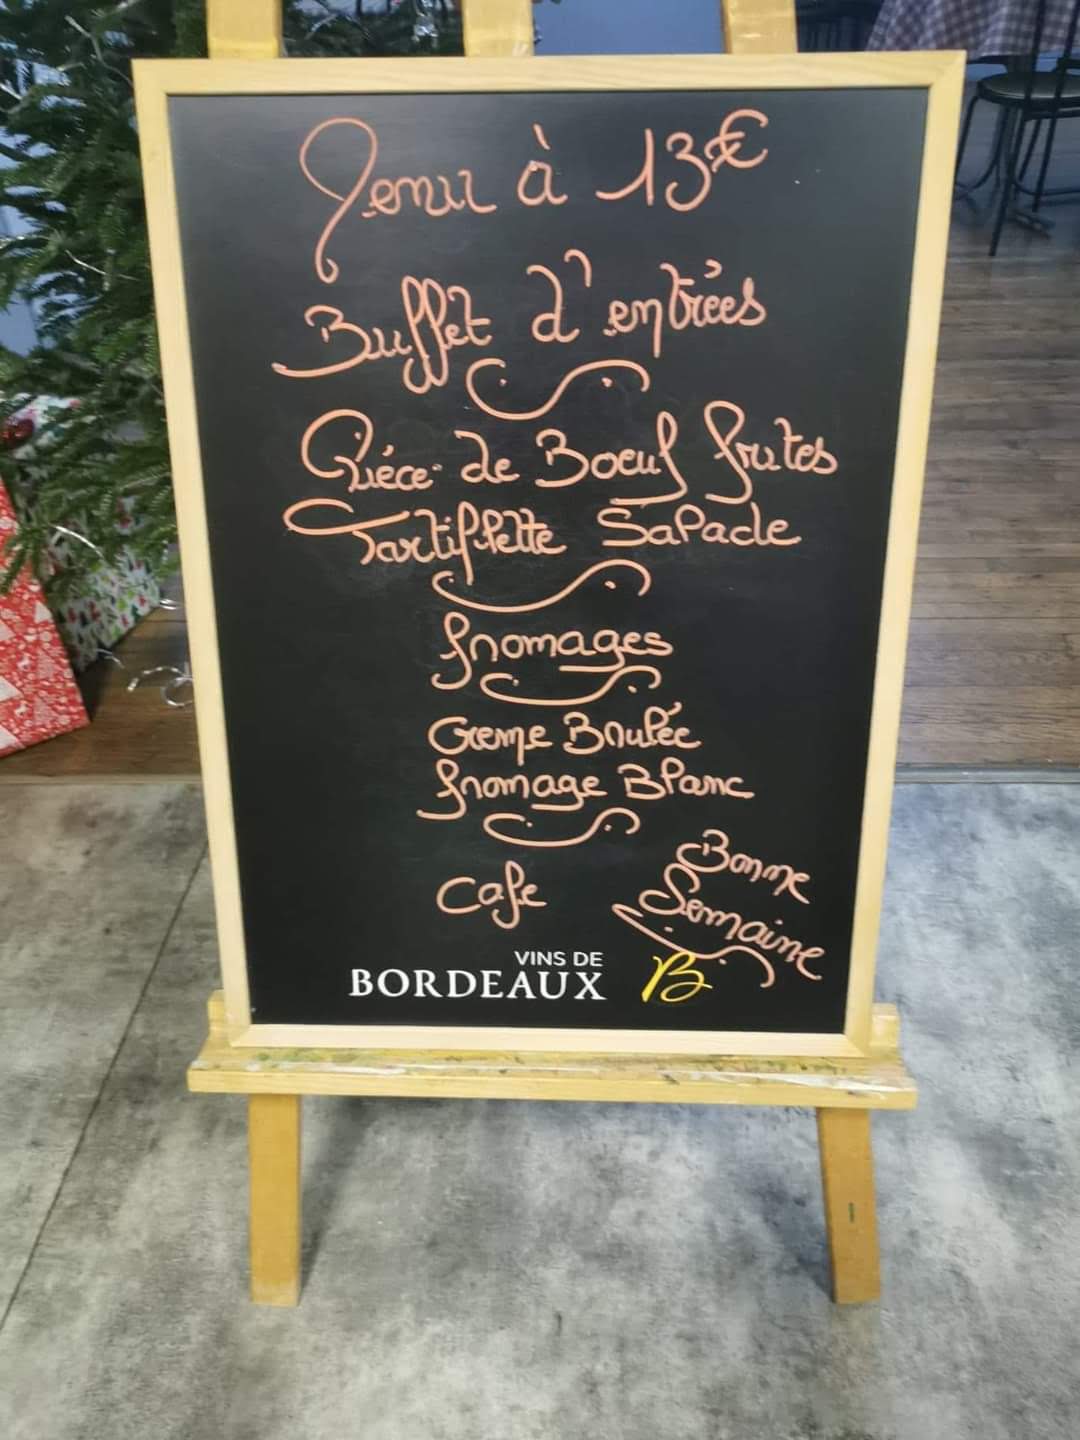 Menu à 13€
Buffet d'entrées
Pièce de Boeuf frites
Tartiflette Salade
fromages
Creme Brulée
fromage Blanc
Cafe
Bonne
Semaine
VINS DE
BORDEAUX B